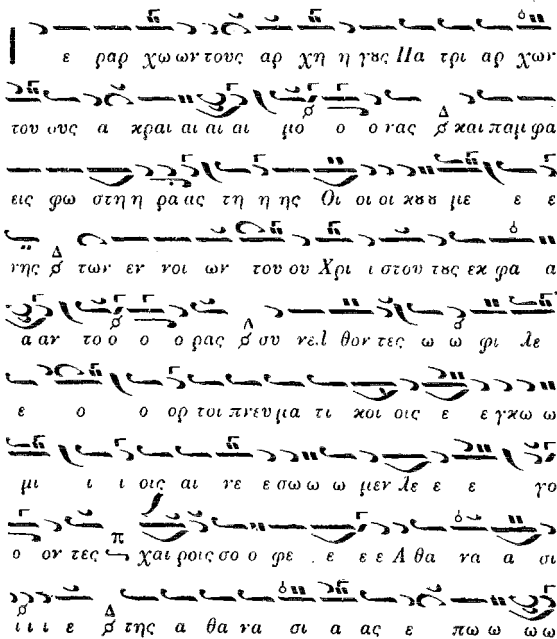 ε ραρ χω ων τους αρ χη η γȣς Πα τρι αρ χων
του ους α κραι αι αι αι μο ο ο νας και παμ φα
εις φω στη η ρα ας τη η ης Οι οι οι κου ου με ε ε
νης των εν νοι ων του ου Χρι ι στου τȣς εκ φα α
α αν το ο ο ο ρας συ νελ θον τες ω ω φι λε
ε ο ο ορ τοι πνευ μα τι κοι οις ε ε γκω ω
μι ι ι οις αι νε ε σω ω ω μεν λε ε ε γο
ο ον τες χαι ροις σο ο φε ε ε ε Α θα να α σι
ι ι ι ε της α θα να σι α ας ε πω ω ω ω